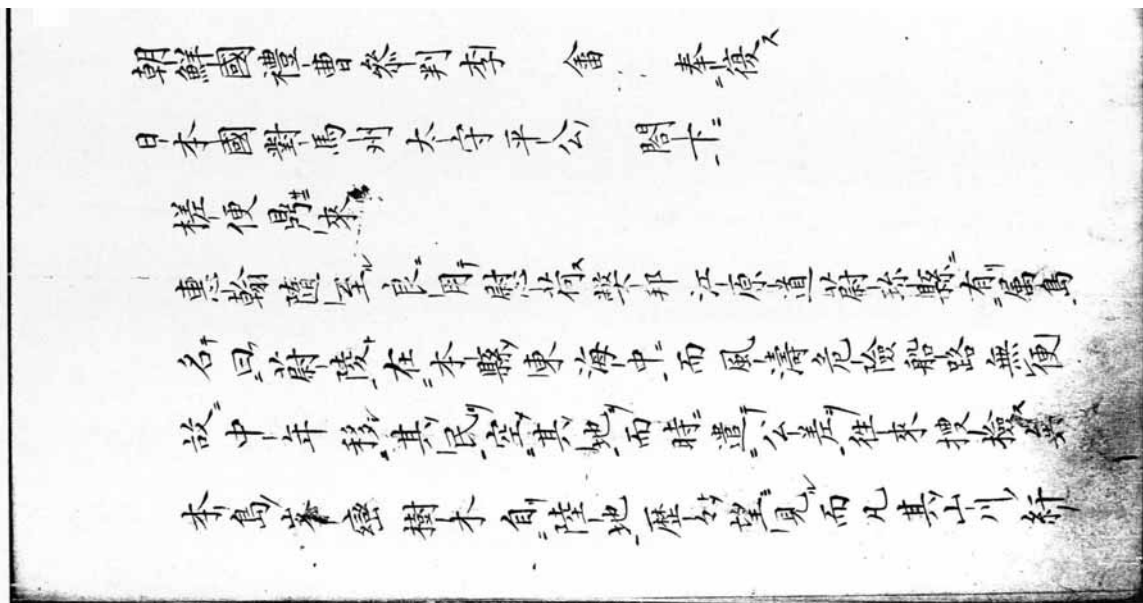 朝鮮國禮曹叅判李　畬　奉復
日本國對馬州太守平公　閤下
槎便鼎來
惠翰隨至良用慰荷弊邦江原道蔚珍縣有屬島
名曰蔚陵在本縣東海中而風濤危險船路無便
故中年移其民空其地而時遣公差往來搜檢矣
本島峯巒樹木自陸地歷々望見而凡其山川紆